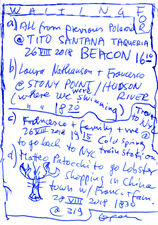 WAITING
a) All from previous Poland
@ TITO SANTANA TAQUERIA
26 VIII 2018 BEACON 16
b) Laura Nathansen + Francesco
@ STONY POINT / HUDSON
(where we swimming) RIVER
" " 1830
c) Francesco + family + me @
26 VIII 2018 1915 Cold Spring
to go back to NYC Train station
d) Mateo Patocchi to go lobster
shopping in China
town w/ Franc. + fam
28 VIII 2018 1830
@ 219